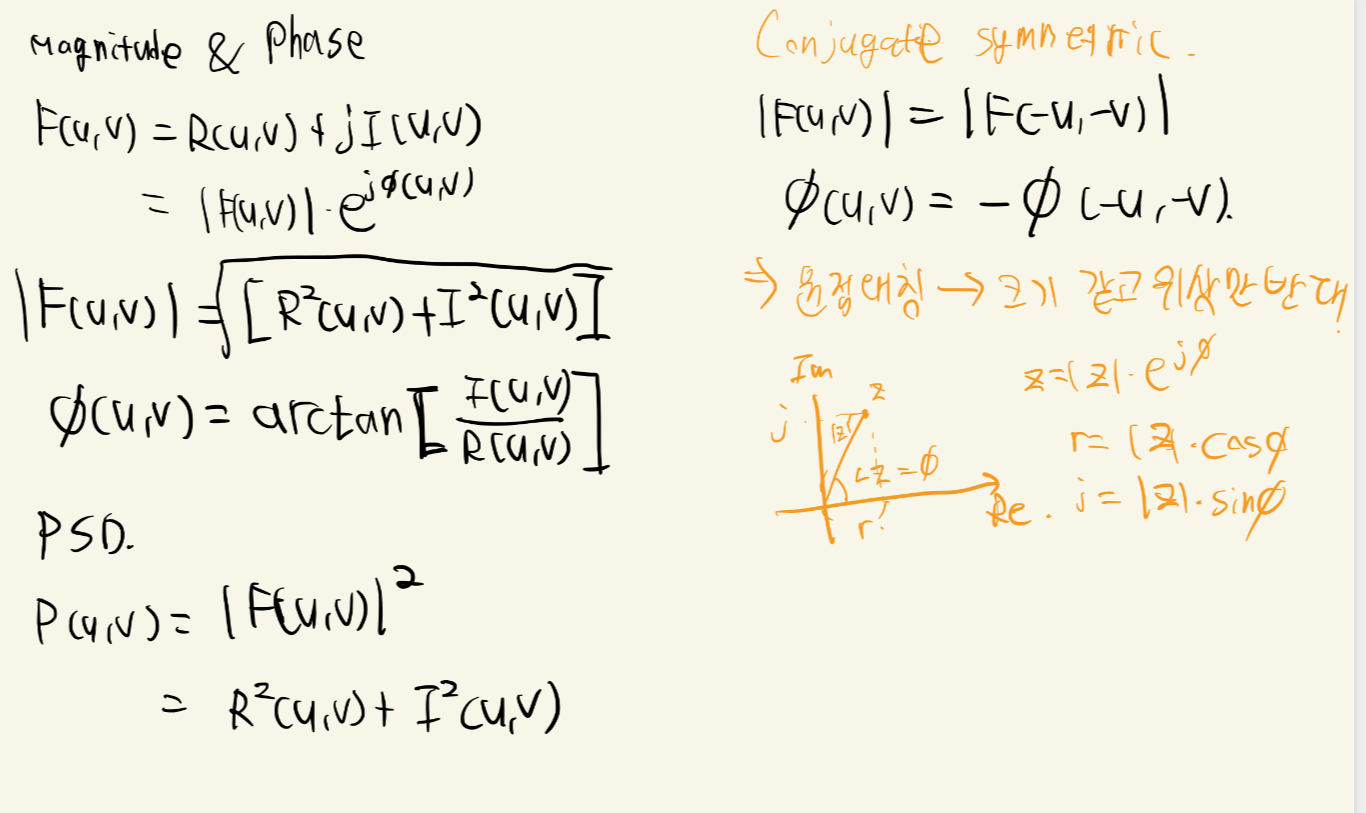 Magnitude & Phase
F(u,v) = R(u,v) + jI(u,v)
= |F(u,v)|·e^{jφ(u,v)}
|F(u,v)| = √[R²(u,v)+I²(u,v)]
φ(u,v) = arctan[I(u,v)/R(u,v)]
PSD.
P(u,v) = |F(u,v)|²
= R²(u,v) + I²(u,v)
Conjugate symmetric.
|F(u,v)| = |F(-u,-v)|
φ(u,v) = -φ(-u,-v).
⇒ 원점대칭 → 크기 같고 위상만 반대!
Im
j
z
|z|
∠z = φ
r
Re.
z=|z|·e^{jφ}
r = |z|·cosφ
j = |z|·sinφ